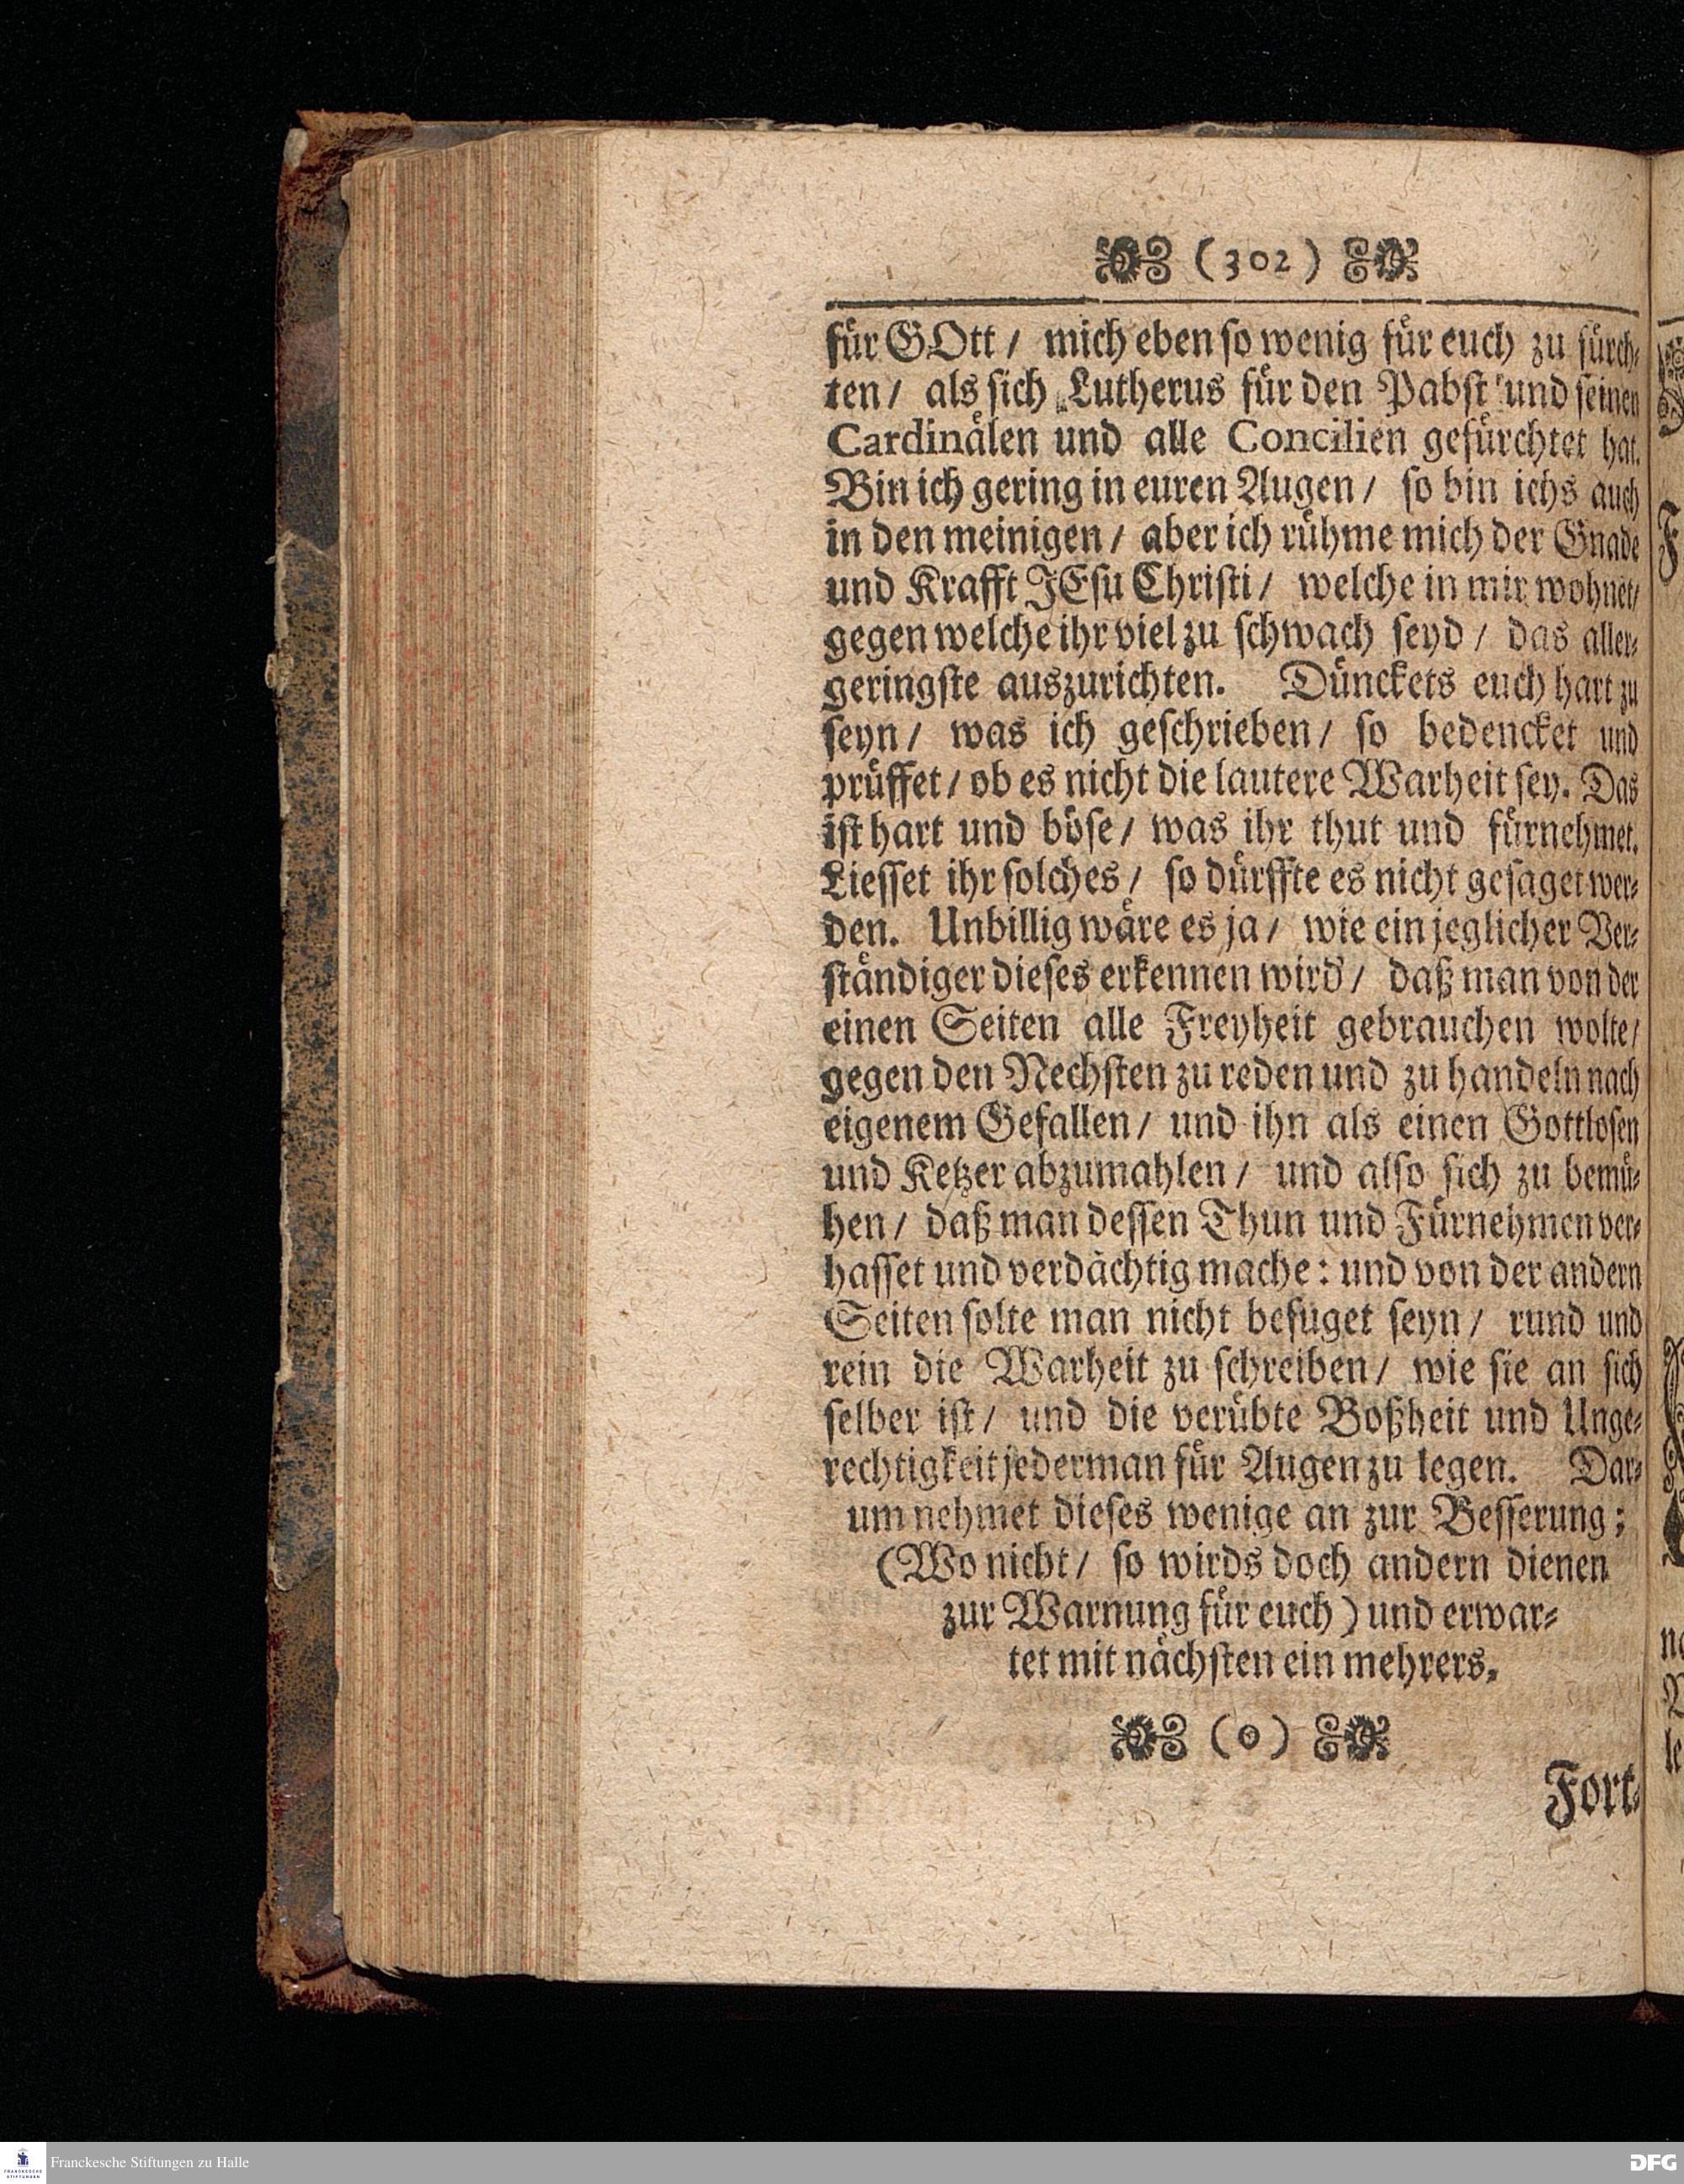 (302)
für GOtt / mich eben so wenig für euch zu fürch-
ten / als sich Lutherus für den Pabst und seinen
Cardinälen und alle Concilien gefürchtet hat.
Bin ich gering in euren Augen / so bin ichs auch
in den meinigen / aber ich rühme mich der Gnade
und Krafft JEsu Christi / welche in mir wohnet /
gegen welche ihr viel zu schwach seyd / das aller-
geringste auszurichten. Dünckets euch hart zu
seyn / was ich geschrieben / so bedencket und
prüffet / ob es nicht die lautere Warheit sey. Das
ist hart und böse / was ihr thut und fürnehmet.
Liesset ihr solches / so dürffte es nicht gesaget wer-
den. Unbillig wäre es ja / wie ein jeglicher Ver-
ständiger dieses erkennen wird / daß man von der
einen Seiten alle Freyheit gebrauchen wolte /
gegen den Nechsten zu reden und zu handeln nach
eigenem Gefallen / und ihn als einen Gottlosen
und Ketzer abzumahlen / und also sich zu bemü-
hen / daß man dessen Thun und Fürnehmen ver-
hasset und verdächtig mache: und von der andern
Seiten solte man nicht befuget seyn / rund und
rein die Warheit zu schreiben / wie sie an sich
selber ist / und die verübte Boßheit und Unge-
rechtigkeit jederman für Augen zu legen. Dar-
um nehmet dieses wenige an zur Besserung;
(Wo nicht / so wirds doch andern dienen
zur Warnung für euch) und erwar-
tet mit nächsten ein mehrers.
(0)
Fort-
Franckesche Stiftungen zu Halle
DFG